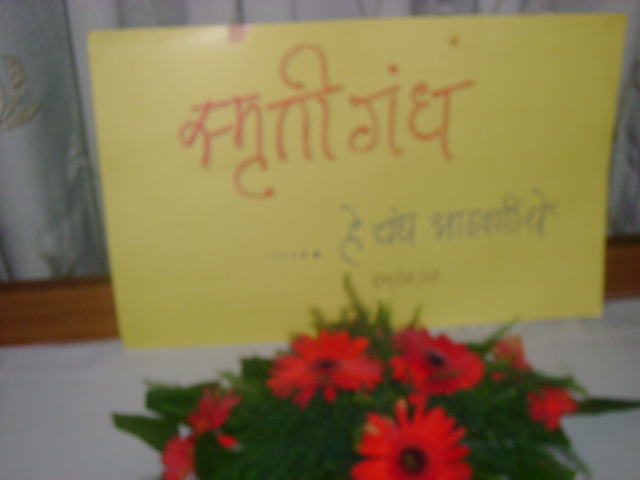 स्मृतीगंधं
..... हे बंध आठवणींचे